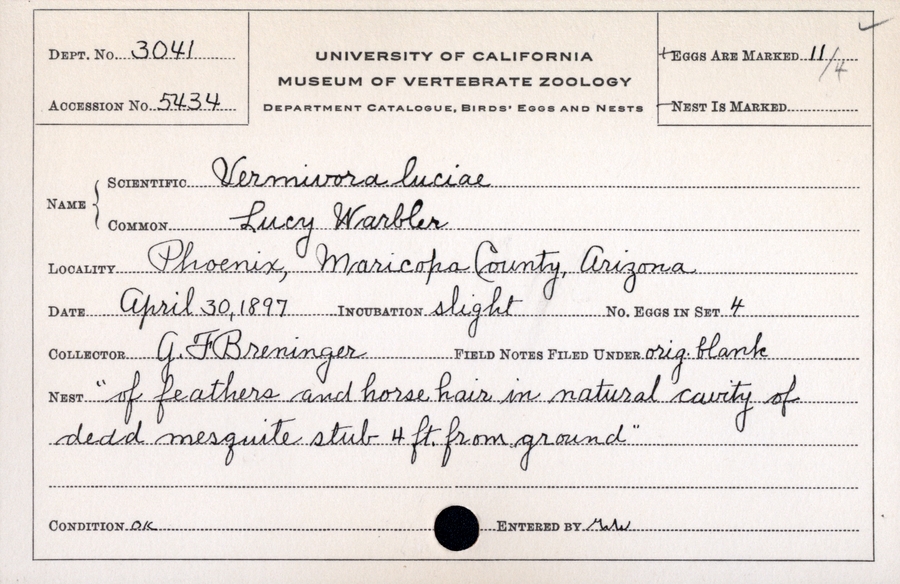 DEPT. NO. 3041
ACCESSION NO. 5434
UNIVERSITY OF CALIFORNIA
MUSEUM OF VERTEBRATE ZOOLOGY
DEPARTMENT CATALOGUE, BIRDS' EGGS AND NESTS
EGGS ARE MARKED 11/4
NEST IS MARKED
NAME
SCIENTIFIC Vermivora luciae
COMMON Lucy Warbler
LOCALITY Phoenix, Maricopa County, Arizona
DATE April 30, 1897 INCUBATION slight NO. EGGS IN SET 4
COLLECTOR G. F Breninger FIELD NOTES FILED UNDER orig. blank
NEST "of feathers and horse hair in natural cavity of
dedd mesquite stub 4 ft. from ground"
CONDITION OK ENTERED BY